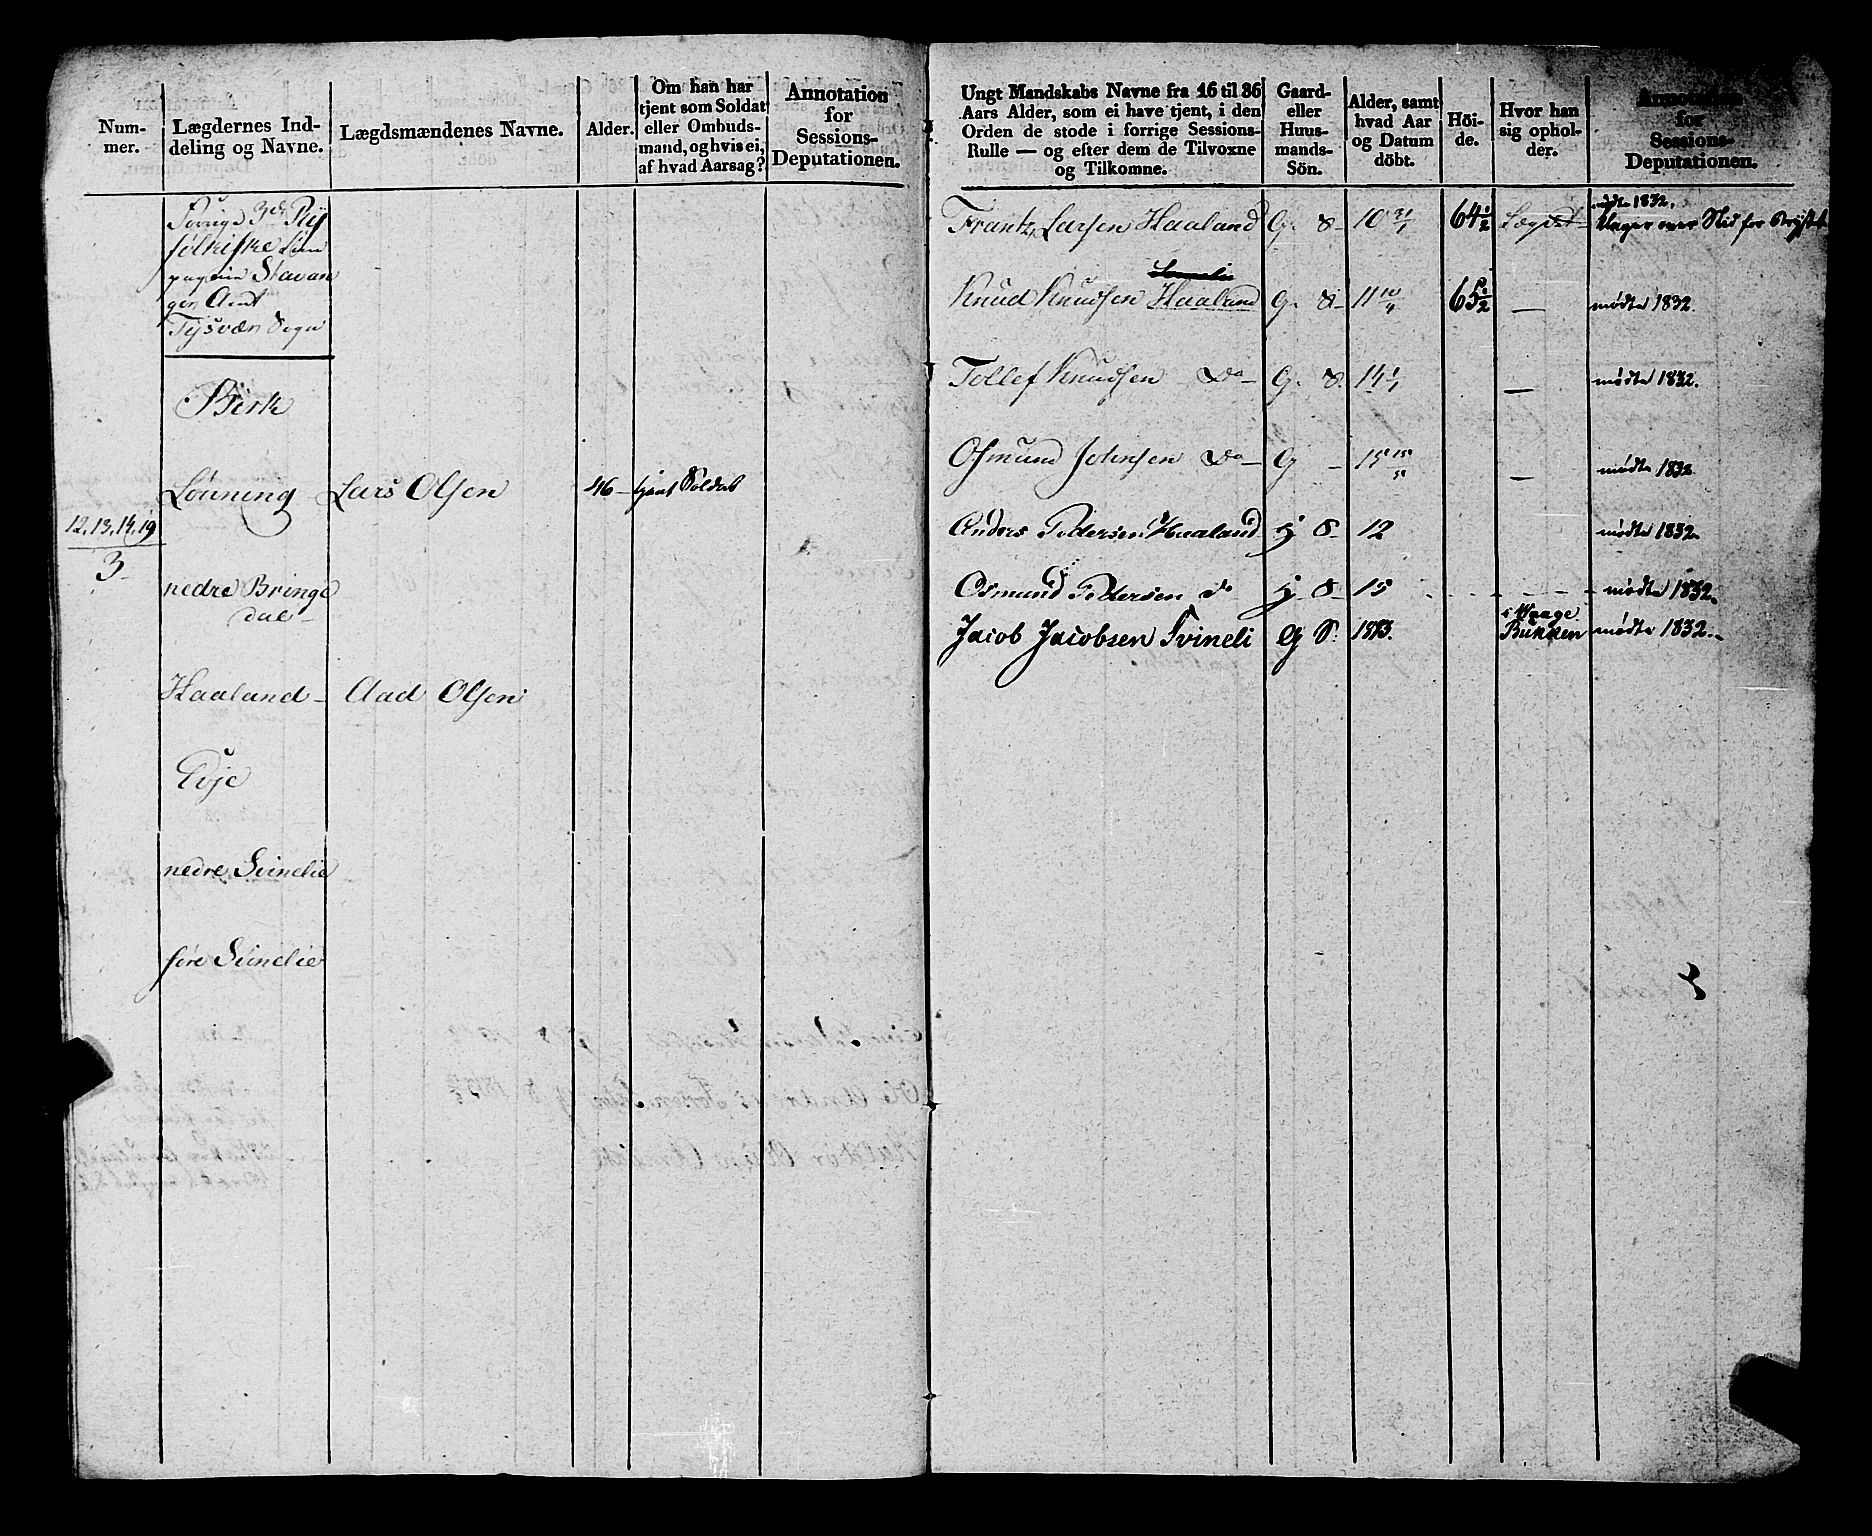 Num-
mer.
Lægdernes Ind-
deling og Navne.
Lægdsmændenes Navne.
Alder.
Om han har
tjent som Soldat
eller Ombuds-
mand, og hvis ei,
af hvad Aarsag?
Annotation
for
Sessions-
Deputationen.
Forrige 3de Ryf
fylkiske Com
pagnie Stavan
ger Amt
Tysvær Sogn
Birk
Løvning Lars Olsen 46 - tjent Soldat
12, 13, 14, 19
3
nedre Bringe
dal
Haaland - Aad Olsen
Evje
nedre Svinelie
føre Svinelie
Ungt Mandskabs Navne fra 16 til 36
Aars Alder, som ei have tjent, i den
Orden de stode i forrige Sessions-
Rulle — og efter dem de Tilvoxne
og Tilkomne.
Gaard-
eller
Huus-
mands-
Sön.
Alder, samt
hvad Aar
og Datum
döbt.
Höi-
de.
Hvor han
sig ophol-
der.
Annotation
for
Sessions-
Deputationen.
mødte 1832.
Frantz Larsen Haaland G. S - 10 31/1 64 1/2 Lægdet
Knud Knudsen Haaland G. S - 11 65 1/2 — mødte 1832.
Tollef Knudsen Do - G. S. 14 1/1 — mødte 1832.
Osmund Johnsen Do - G - 15 — mødte 1832
Anders Pedersen Haaland H S - 12 mødte 1832.
Osmund Pedersen do H - S - 15 - mødte 1832.
Jacob Jacobsen Svineli G S. Bukken mødte 1832.